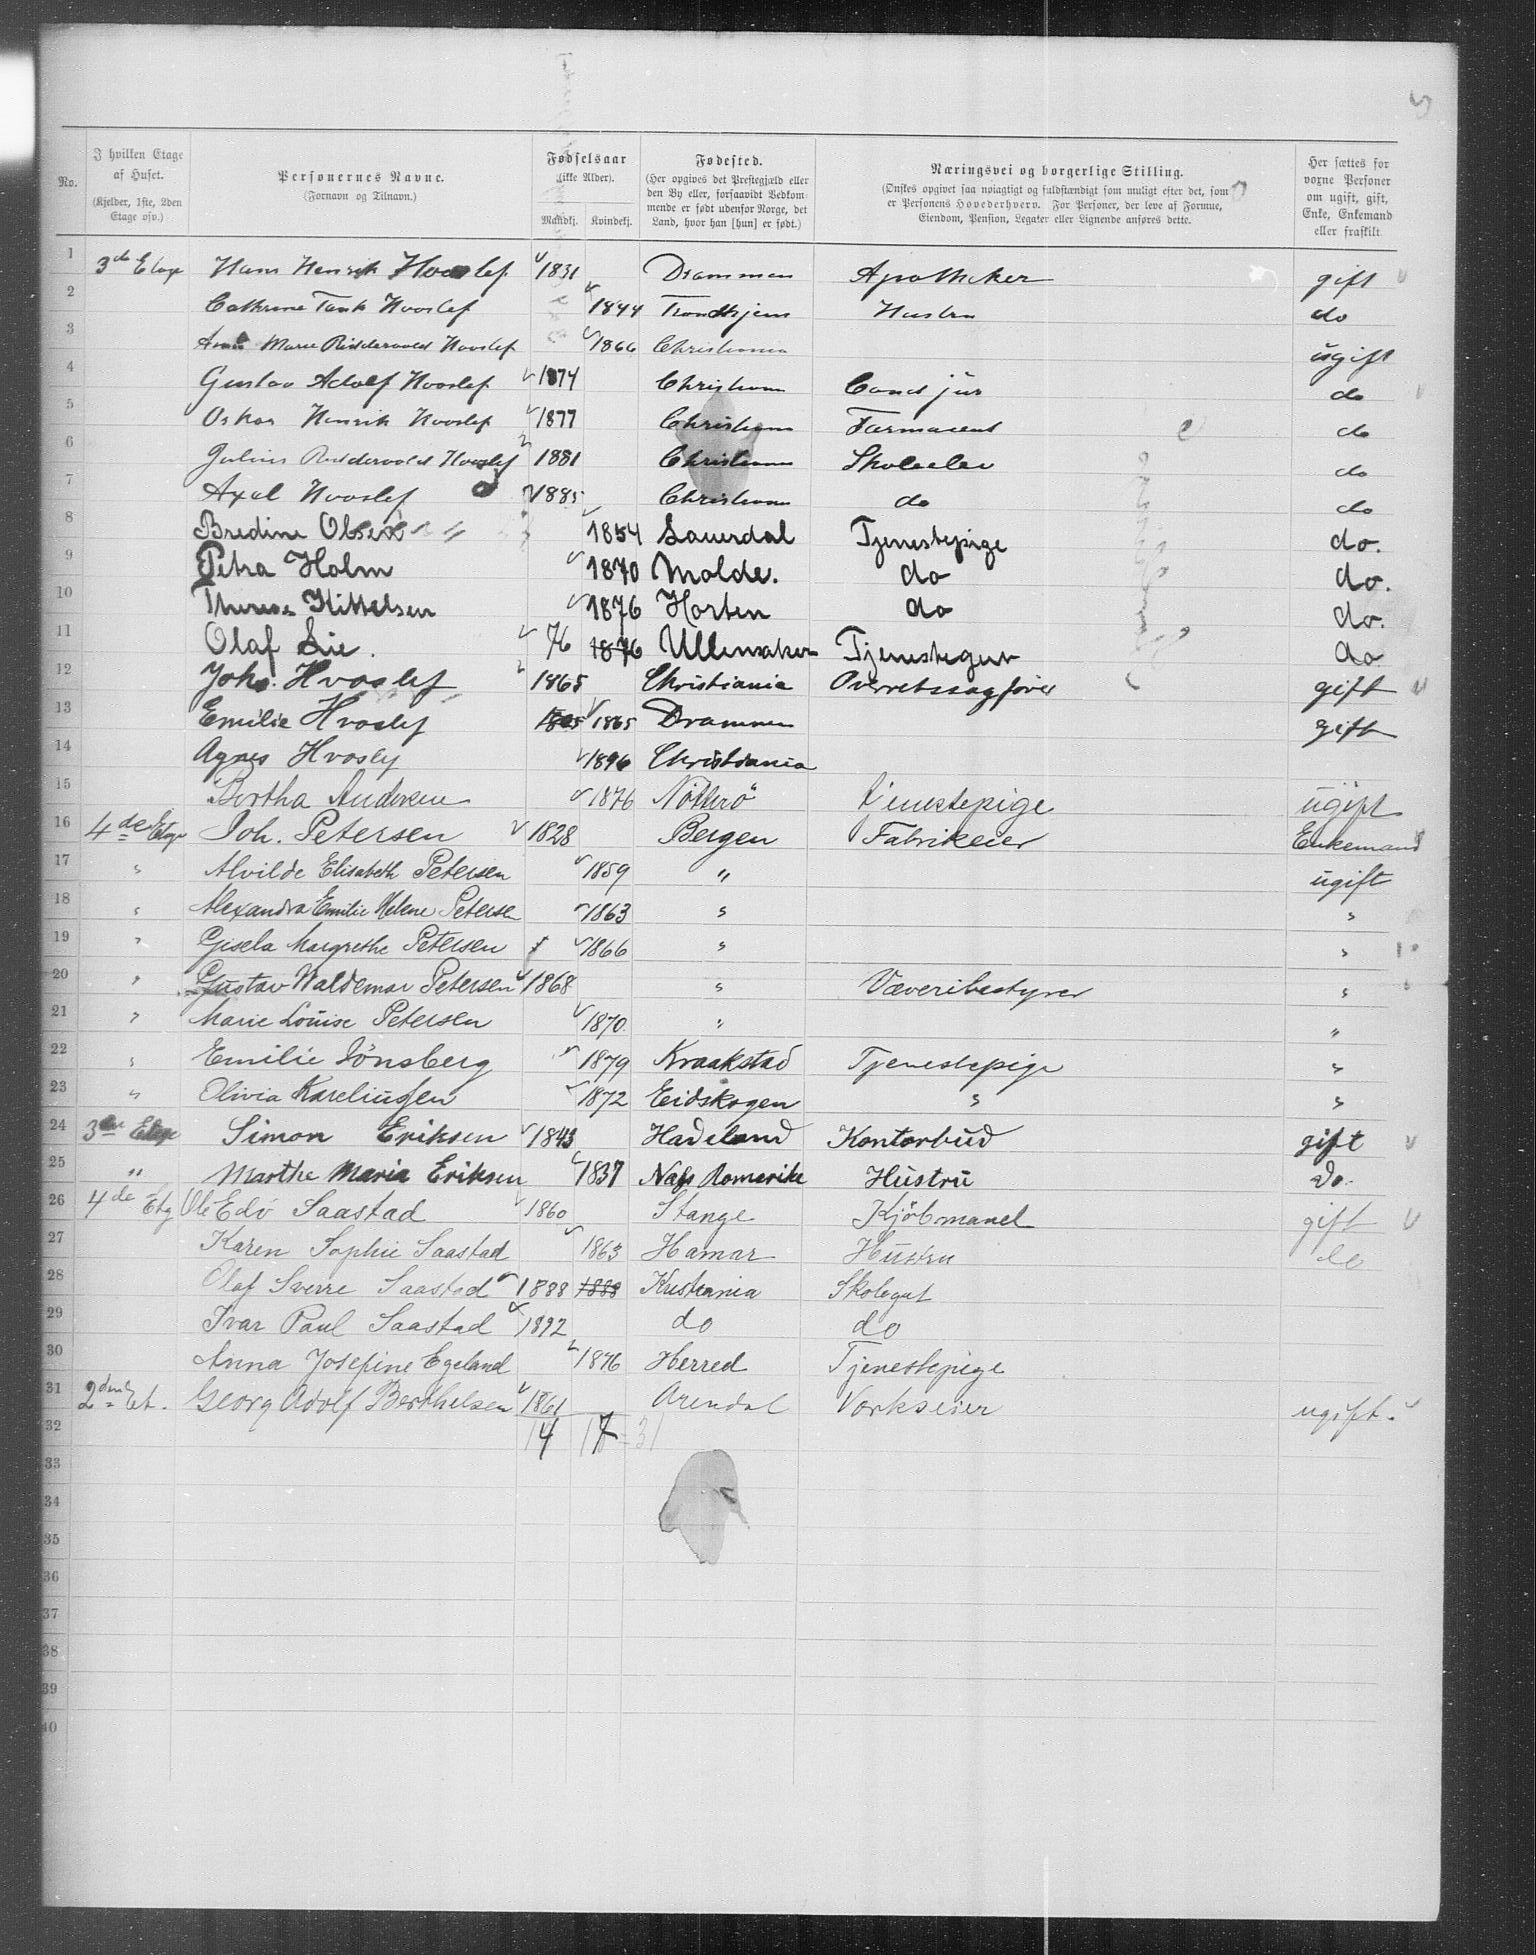 No.
I hvilken Etage af Huset. (Kjelder, 1ste, 2den Etage osv.)
Personernes Navne. (Fornavn og Tilnavn.)
Fødselsaar (ikke Alder). Mandkj. Kvindekj.
Fødested. (Her opgives det Prestegjæld eller den By eller, forsaavidt Vedkommende er født udenfor Norge, det Land, hvor han [hun] er født.)
Næringsvei og borgerlige Stilling. (Ønskes opgivet saa nøiagtigt og fuldstændigt som muligt efter det, som er Personens Hovederhverv. For Personer, der leve af Formue, Eiendom, Pension, Legater eller Lignende anføres dette.)
Her sættes for voxne Personer om ugift, gift, Enke, Enkemand eller fraskilt.
1 3de Etage Hans Henrik Hvoslef 1831 Drammen Apotheker gift
2 Cathrine Tank Hvoslef 1844 Trondhjem Hustru do
3 Anna Marie Riddervold Hvoslef 1866 Christiania ugift
4 Gustav Adolf Hvoslef 1874 Christiania Cand jur do
5 Oskar Henrik Hvoslef 1877 Christiania Farmaceut do
6 Julius Riddervold Hvoslef 1881 Christiania Skoleelev do
7 Axel Hvoslef 1885 Christiania do do
8 Bredine Olsen 1854 Lauerdal Tjenestepige do.
9 Petra Holm 1870 Molde. do do.
10 Therese Kittelsen 1876 Horten do do.
11 Olaf Lie. 76 1876 Ullensaker Tjenestegut do
12 Johs. Hvoslef 1865 Christiania Overretssagfører gift
13 Emilie Hvoslef 1865 1865 Drammen gift
14 Agnes Hvoslef 1896 Christiania
15 Bertha Andersen 1876 Nötterö tjenestepige ugift
16 4de Etage Joh. Petersen 1828 Bergen Fabrikeier Enkemand
17 " Alvilde Elisabeth Petersen 1859 " ugift
18 " Alexandra Emilie Helene Petersen 1863 " "
19 " Gisela Margrethe Petersen 1866 " "
20 " Gustav Waldemar Petersen 1868 " Væveribestyrer "
21 " Marie Louise Petersen 1870 " "
22 " Emilie Tönsberg 1879 Kraakstad Tjenestepige "
23 " Olivia Kareliussen 1872 Eidskogen " "
24 3die Etage Simon Eriksen 1843 Hadeland Kontorbud gift
25 " Marthe Maria Eriksen 1837 Næs Romerike Hustru Do.
26 4de Etg Ole Edv Saastad 1860 Stange Kjöbmand gift
27 Karen Sophie Saastad 1863 Hamar Hustru do
28 Olaf Sverre Saastad 1888 1888 Kristiania Skolegut
29 Ivar Paul Saastad 1892 do do
30 Anna Josefine Egeland 1876 Herred Tjenestepige
31 2den Et. Georg Adolf Berthelsen 1861 Arendal Værkseier ugift.
32 14 17 - 31
33
34
35
36
37
38
39
40